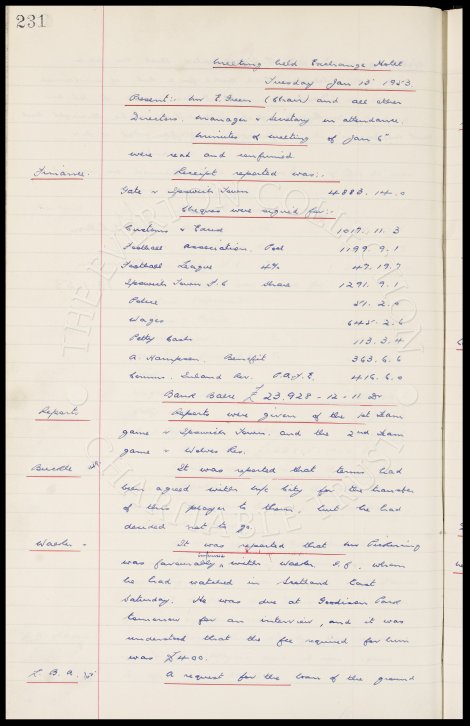 231
Meeting held Exchange Hotel
Tuesday Jan 13th 1953.
Present:- Mr E. Green (Chair) and all other
Directors. Manager & Secretary in attendance.
Minutes of meeting of Jan 6th
were read and confirmed
Finance. Receipt reported was:-
Gate v Ipswich Town 4883. 14. 0
Cheques were signed for:-
Customs & Excise 1017. 11. 3
Football Association. Pool 1199. 9. 1
Football League 4% 47. 19. 7
Ipswich Town F.C Share 1291. 9. 1
Police 51. 2. 6
Wages 645. 2. 6
Petty Cash 113. 3. 4
A. Hampson. Benefit 363. 6. 6
Comms. Inland Rev. P.A.Y.E. 416. 6. 0
Bank Balce £23,928 - 12 - 11 Dr
Reports Reports were given of the 1st Team
game v Ipswich Town. and the 2nd Team
game v Wolves Res.
Buckle It was reported that terms had
been agreed with M/c City for the transfer
of this player to them, but he had
decided not to go.
It was reported that Mr Pickering
was favourably with I.F., whom
he had watched in Scotland last
Saturday. He was due at Goodison Park
tomorrow for an interview, and it was
understood that the fee required for him
was £400.
L.B.A. A request for the loan of the ground
THE EVERTON COLLECTION
CHARITABLE TRUST